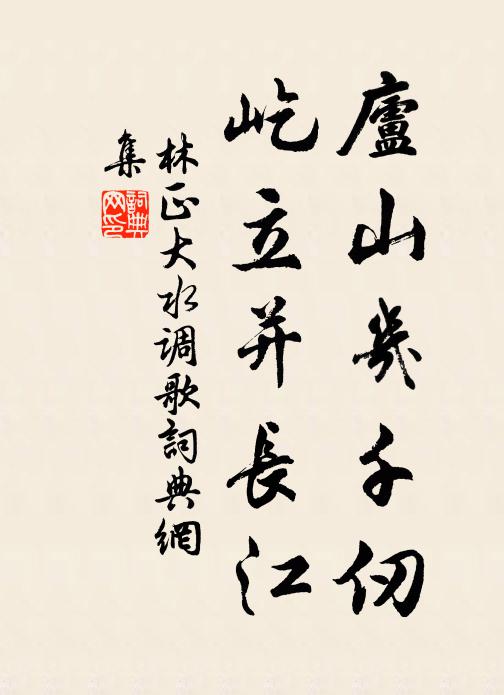 廬山幾千仞
屹立并長江
林正大水调歌詞典網
集
詞典网印